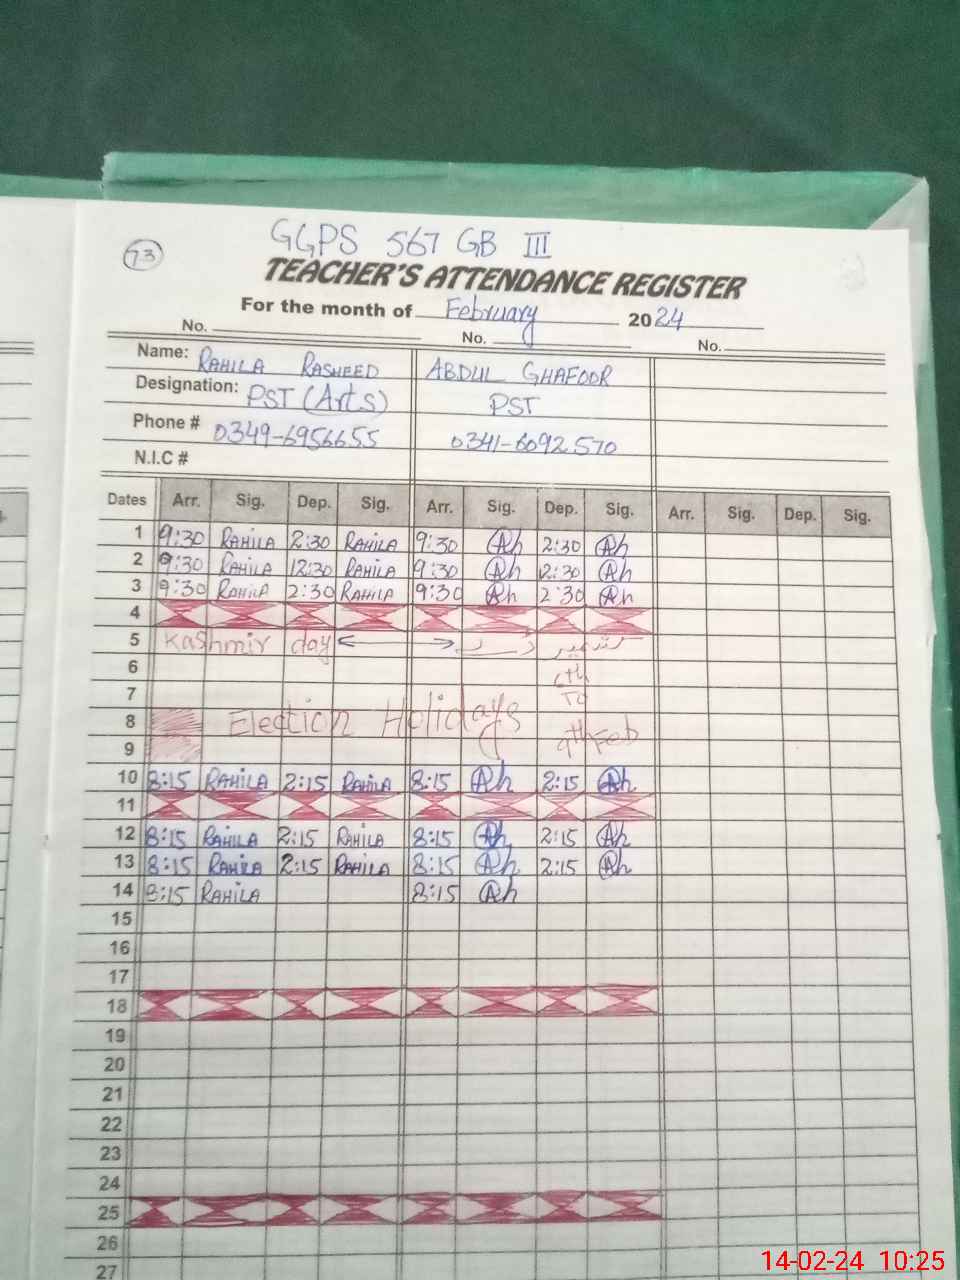 73
GGPS 567 GB III
TEACHER'S ATTENDANCE REGISTER
For the month of February 2024
No. No. No.
Name: RAHILA RASHEED ABDUL GHAFOOR
Designation: PST (Arts) PST
Phone # 0349-6956655 0341-6092570
N.I.C #
Dates Arr. Sig. Dep. Sig. Arr. Sig. Dep. Sig. Arr. Sig. Dep. Sig.
1 9:30 RAHILA 2:30 RAHILA 9:30 Ah 2:30 Ah
2 9:30 RAHILA 12:30 RAHILA 9:30 Ah 2:30 Ah
3 9:30 RAHILA 2:30 RAHILA 9:30 Ah 2:30 Ah
4
5 Kashmir day کشمیر ڈے
6 6th
7 To
8 Election Holidays
9 9th Feb
10 8:15 RAHILA 2:15 RAHILA 8:15 Ah 2:15 Ah
11
12 8:15 RAHILA 2:15 RAHILA 8:15 Ah 2:15 Ah
13 8:15 RAHILA 2:15 RAHILA 8:15 Ah 2:15 Ah
14 8:15 RAHILA 8:15 Ah
15
16
17
18
19
20
21
22
23
24
25
26
27
14-02-24 10:25